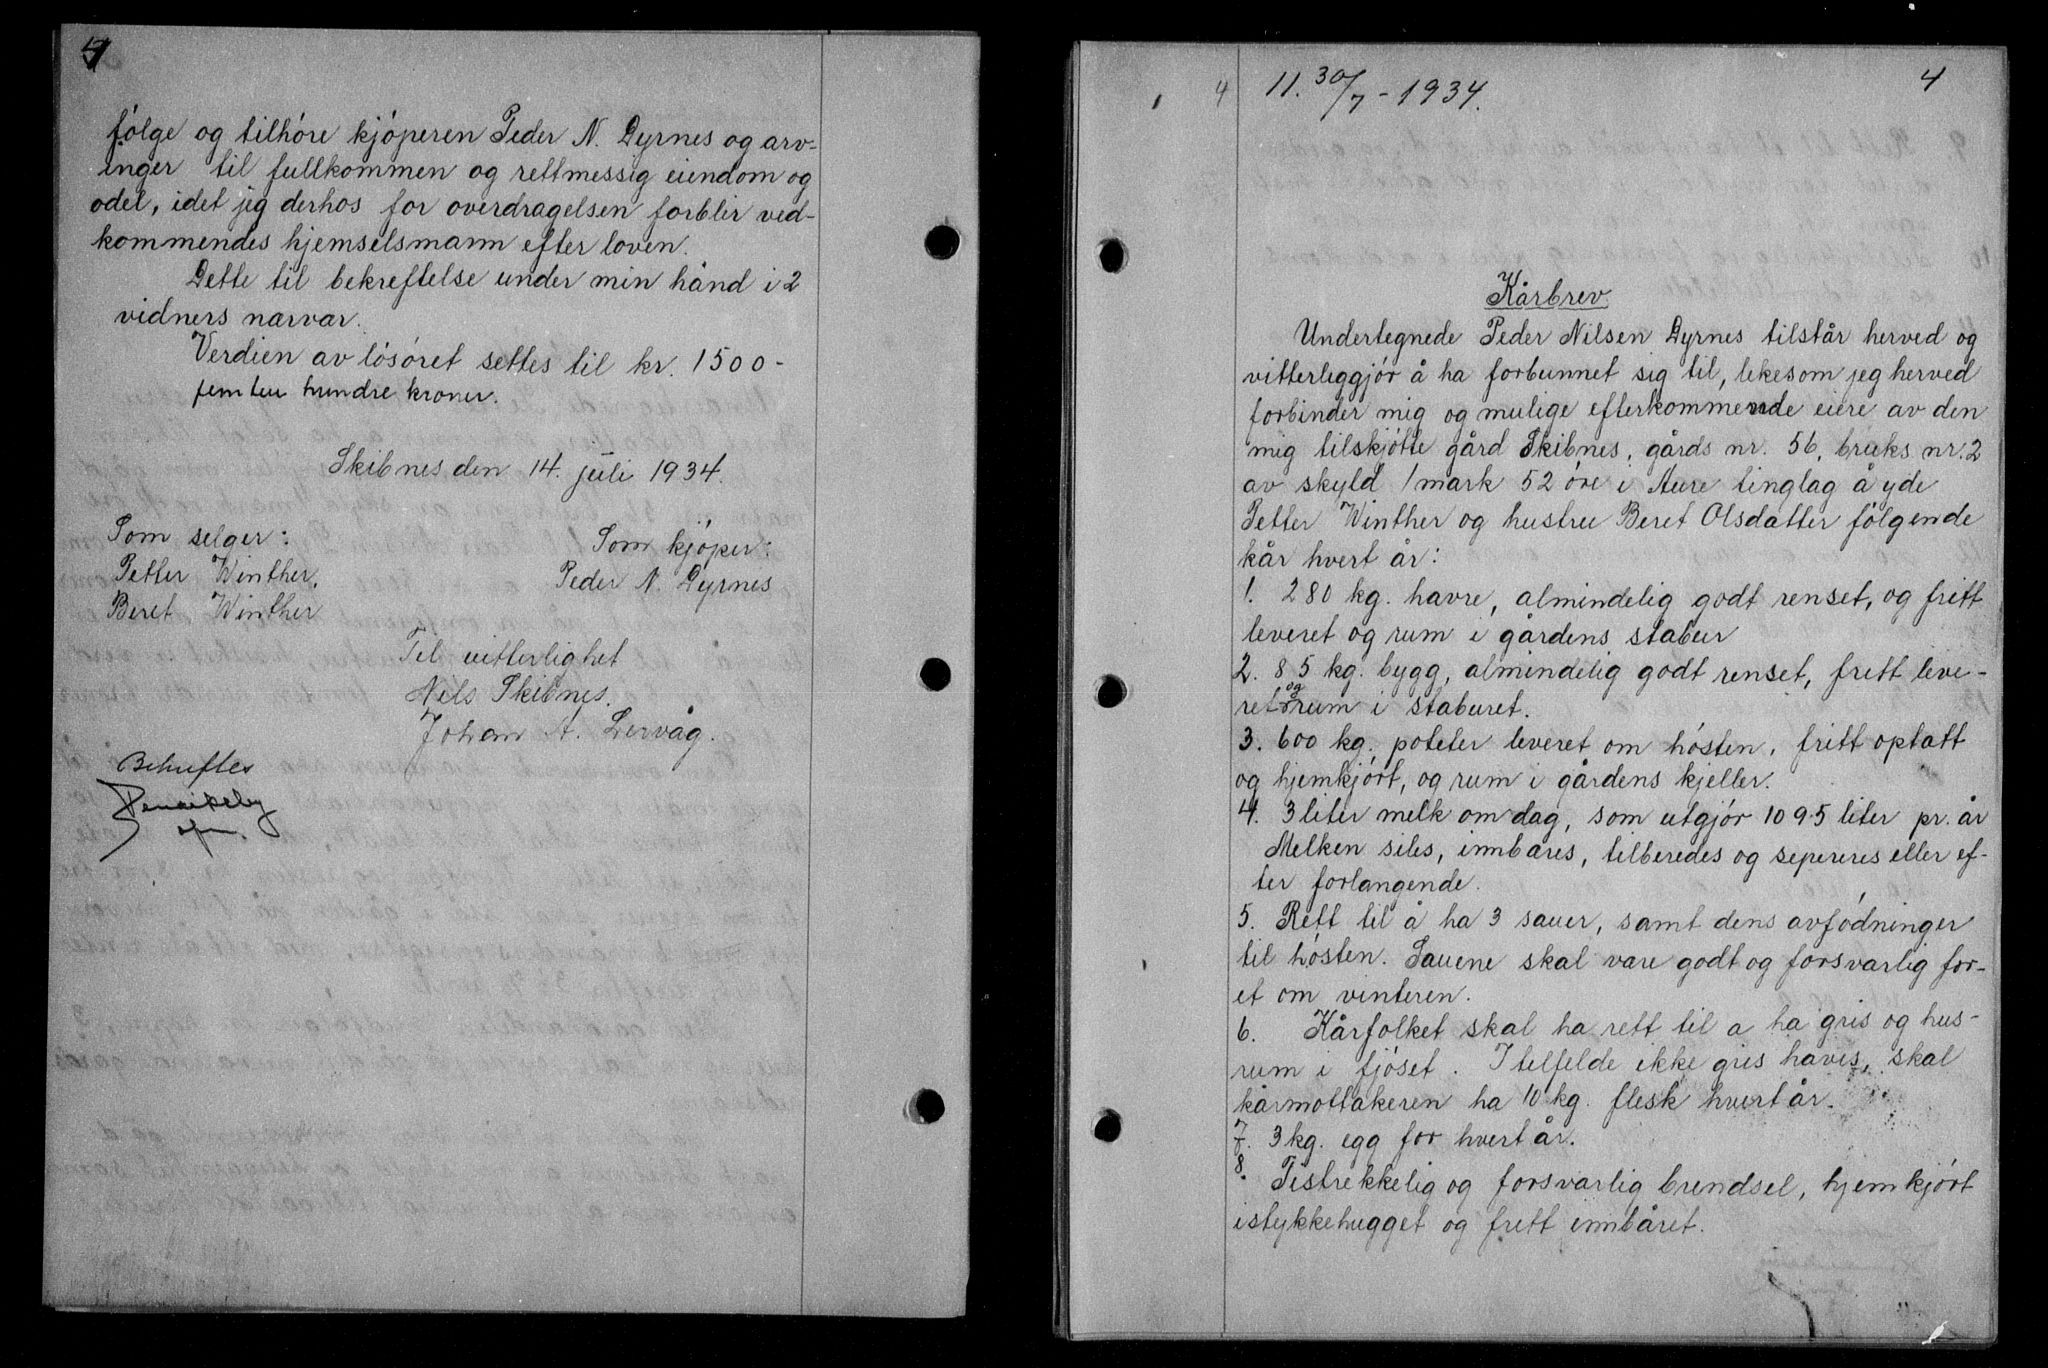 følge og tilhøre kjøperen Peder N. Dyrnes og arv-
inger til fullkommen og rettmessig eiendom og
odel, idet jeg derhos for overdragelsen forblir ved-
kommendes hjemselsmann efter loven.
Dette til bekreftelse under min hånd i 2
vidners nærvær.
Verdien av løsøret settes til kr. 1500-
femten hundre kroner.
Skibnes den 14. juli 1934.
Som selger:
Petter Winther.
Beret Winther
Som kjøper:
Peder N. Dyrnes
Til vitterlighet
Nils Skibnes.
Johan A. Lervåg.
Bekreftes
4
11. 30/7 - 1934.
4
Kårbrev
Undertegnede Peder Nilsen Dyrnes tilstår herved og
vitterliggjør å ha forbunnet sig til, likesom jeg herved
forbinder mig og mulige efterkommende eiere av den
mig tilskjøtte gård Skibnes, gårds nr. 56, bruks nr. 2
av skyld 1 mark 52 øre i Aure tinglag å yde
Petter Winther og hustru Beret Olsdatter følgende
kår hvert år:
1. 280 kg. havre, almindelig godt renset, og fritt
leveret og rum i gårdens stabur
2. 85 kg. bygg, almindelig godt renset, fritt leve-
ret og rum i staburet.
3. 600 kg. poteter leveret om høsten, fritt optatt
og hjemkjørt, og rum i gårdens kjeller.
4. 3 liter melk om dag, som utgjør 1095 liter pr. år
Melken siles, innbæres, tilberedes og sepereres eller ef-
ter forlangende.
5. Rett til å ha 3 sauer, samt dens avfødninger
til høsten. Sauene skal være godt og forsvarlig for-
et om vinteren.
6. Kårfolket skal ha rett til a ha gris og hus-
rum i fjøset. I tilfelde ikke gris haves, skal
kårmottakeren ha 10 kg. flesk hvert år.
7. 3 kg. egg for hvert år.
8. Tistrekkelig og forsvarlig brendsel, hjemkjørt
istykkehugget og fritt innbåret.